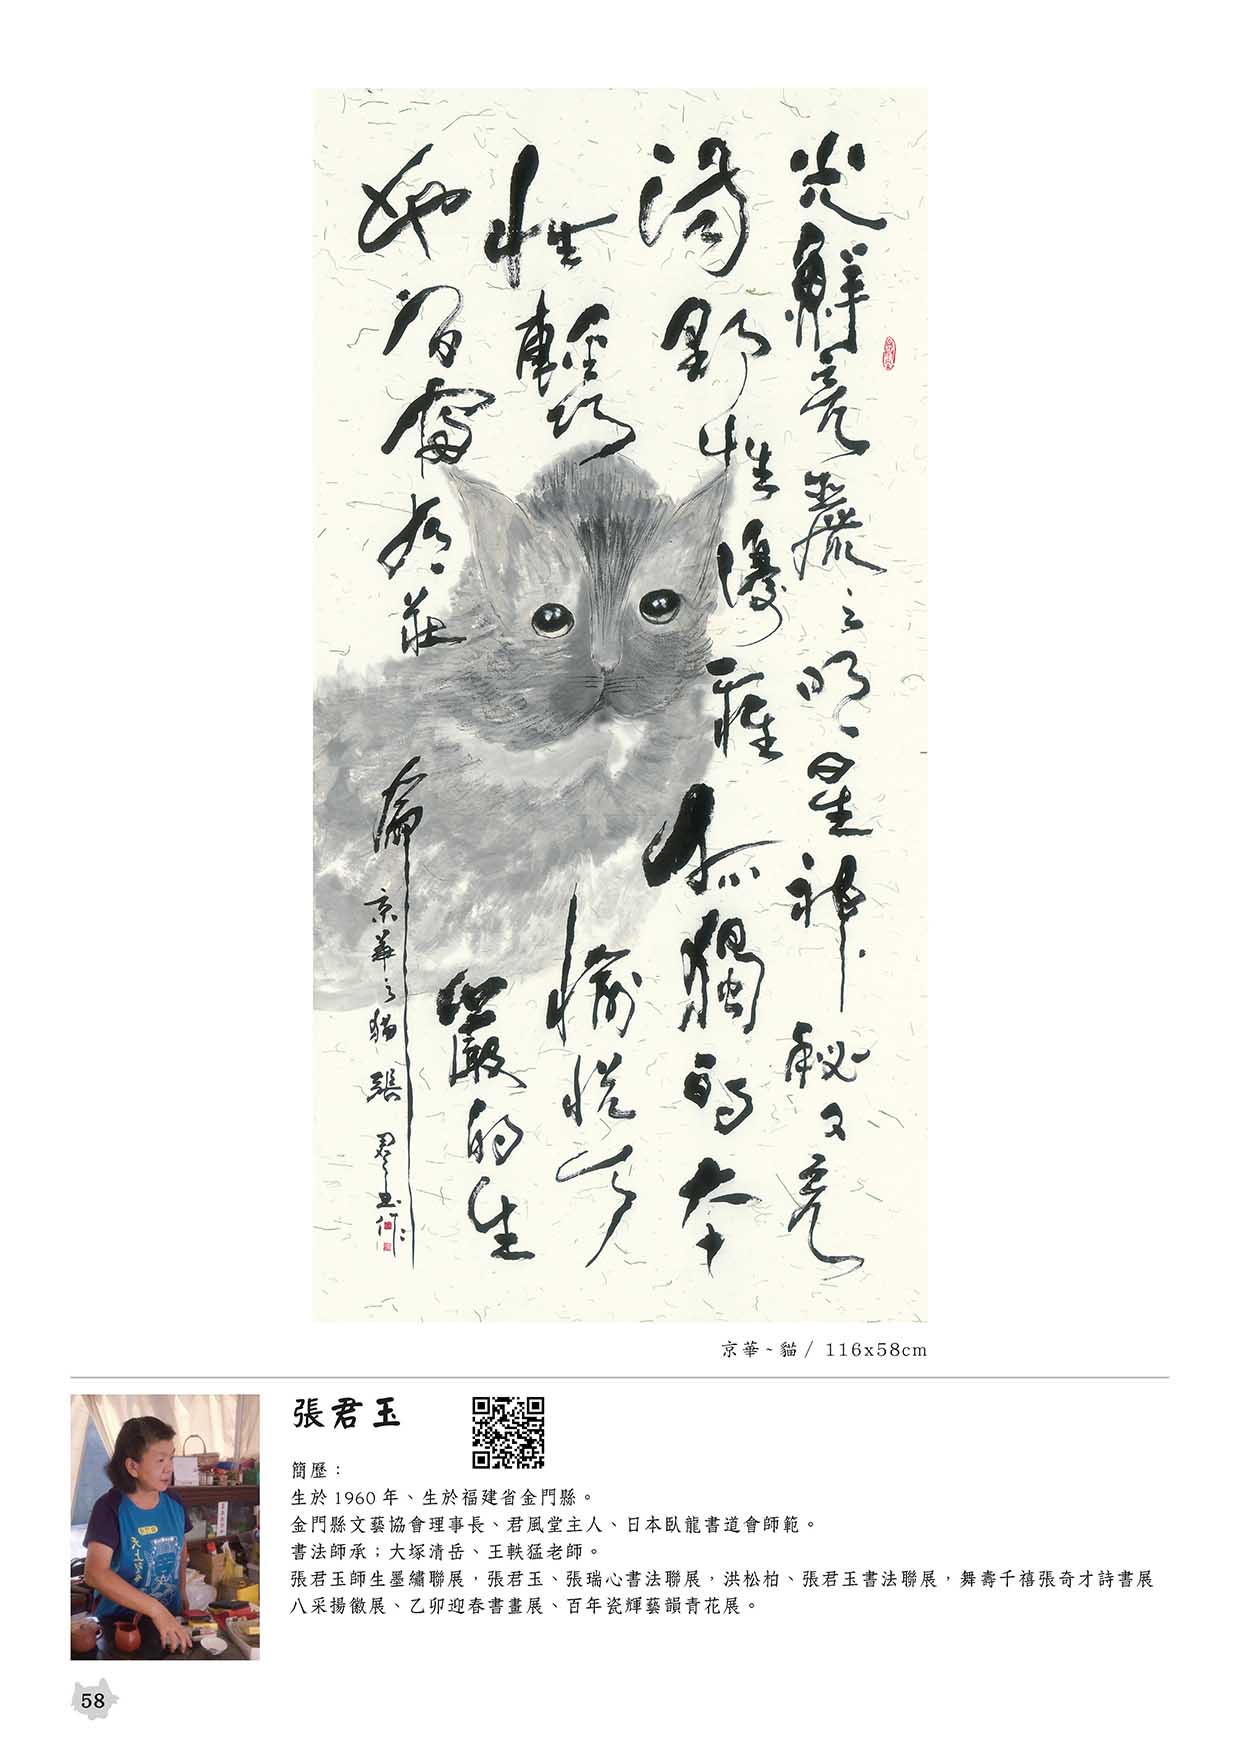 光鮮亮麗之明星神秘又亮
野性優雅孤獨的本
性輕巧愉悅
她 莊嚴的生
命
京華之貓 張君玉作
京華~貓 / 116x58cm
張君玉
簡歷：
生於1960年、生於福建省金門縣。
金門縣文藝協會理事長、君風堂主人、日本臥龍書道會師範。
書法師承；大塚清岳、王軼猛老師。
張君玉師生墨繡聯展，張君玉、張瑞心書法聯展，洪松柏、張君玉書法聯展，舞壽千禧張奇才詩書展
八采揚徽展、乙卯迎春書畫展、百年瓷輝藝韻青花展。
58